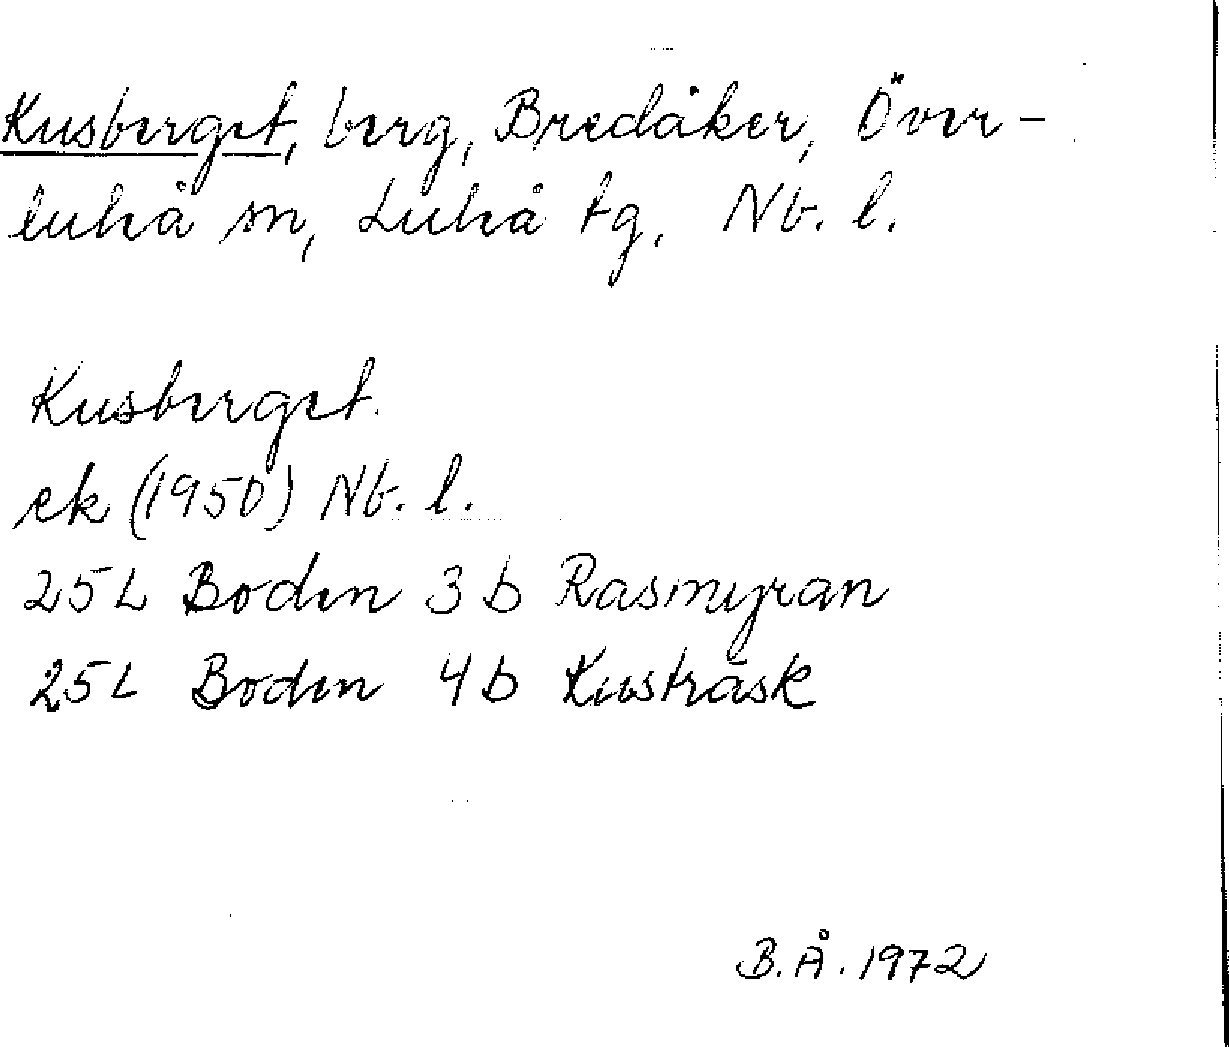 Kusberget, berg, Bredåker, Över-
luleå sn, Luleå tg, Nb. l.
Kusberget.
ek (1950) Nb. l.
25L Boden 3 b Rasmyran
25L Boden 4 b Kusträsk
B.Å. 1972